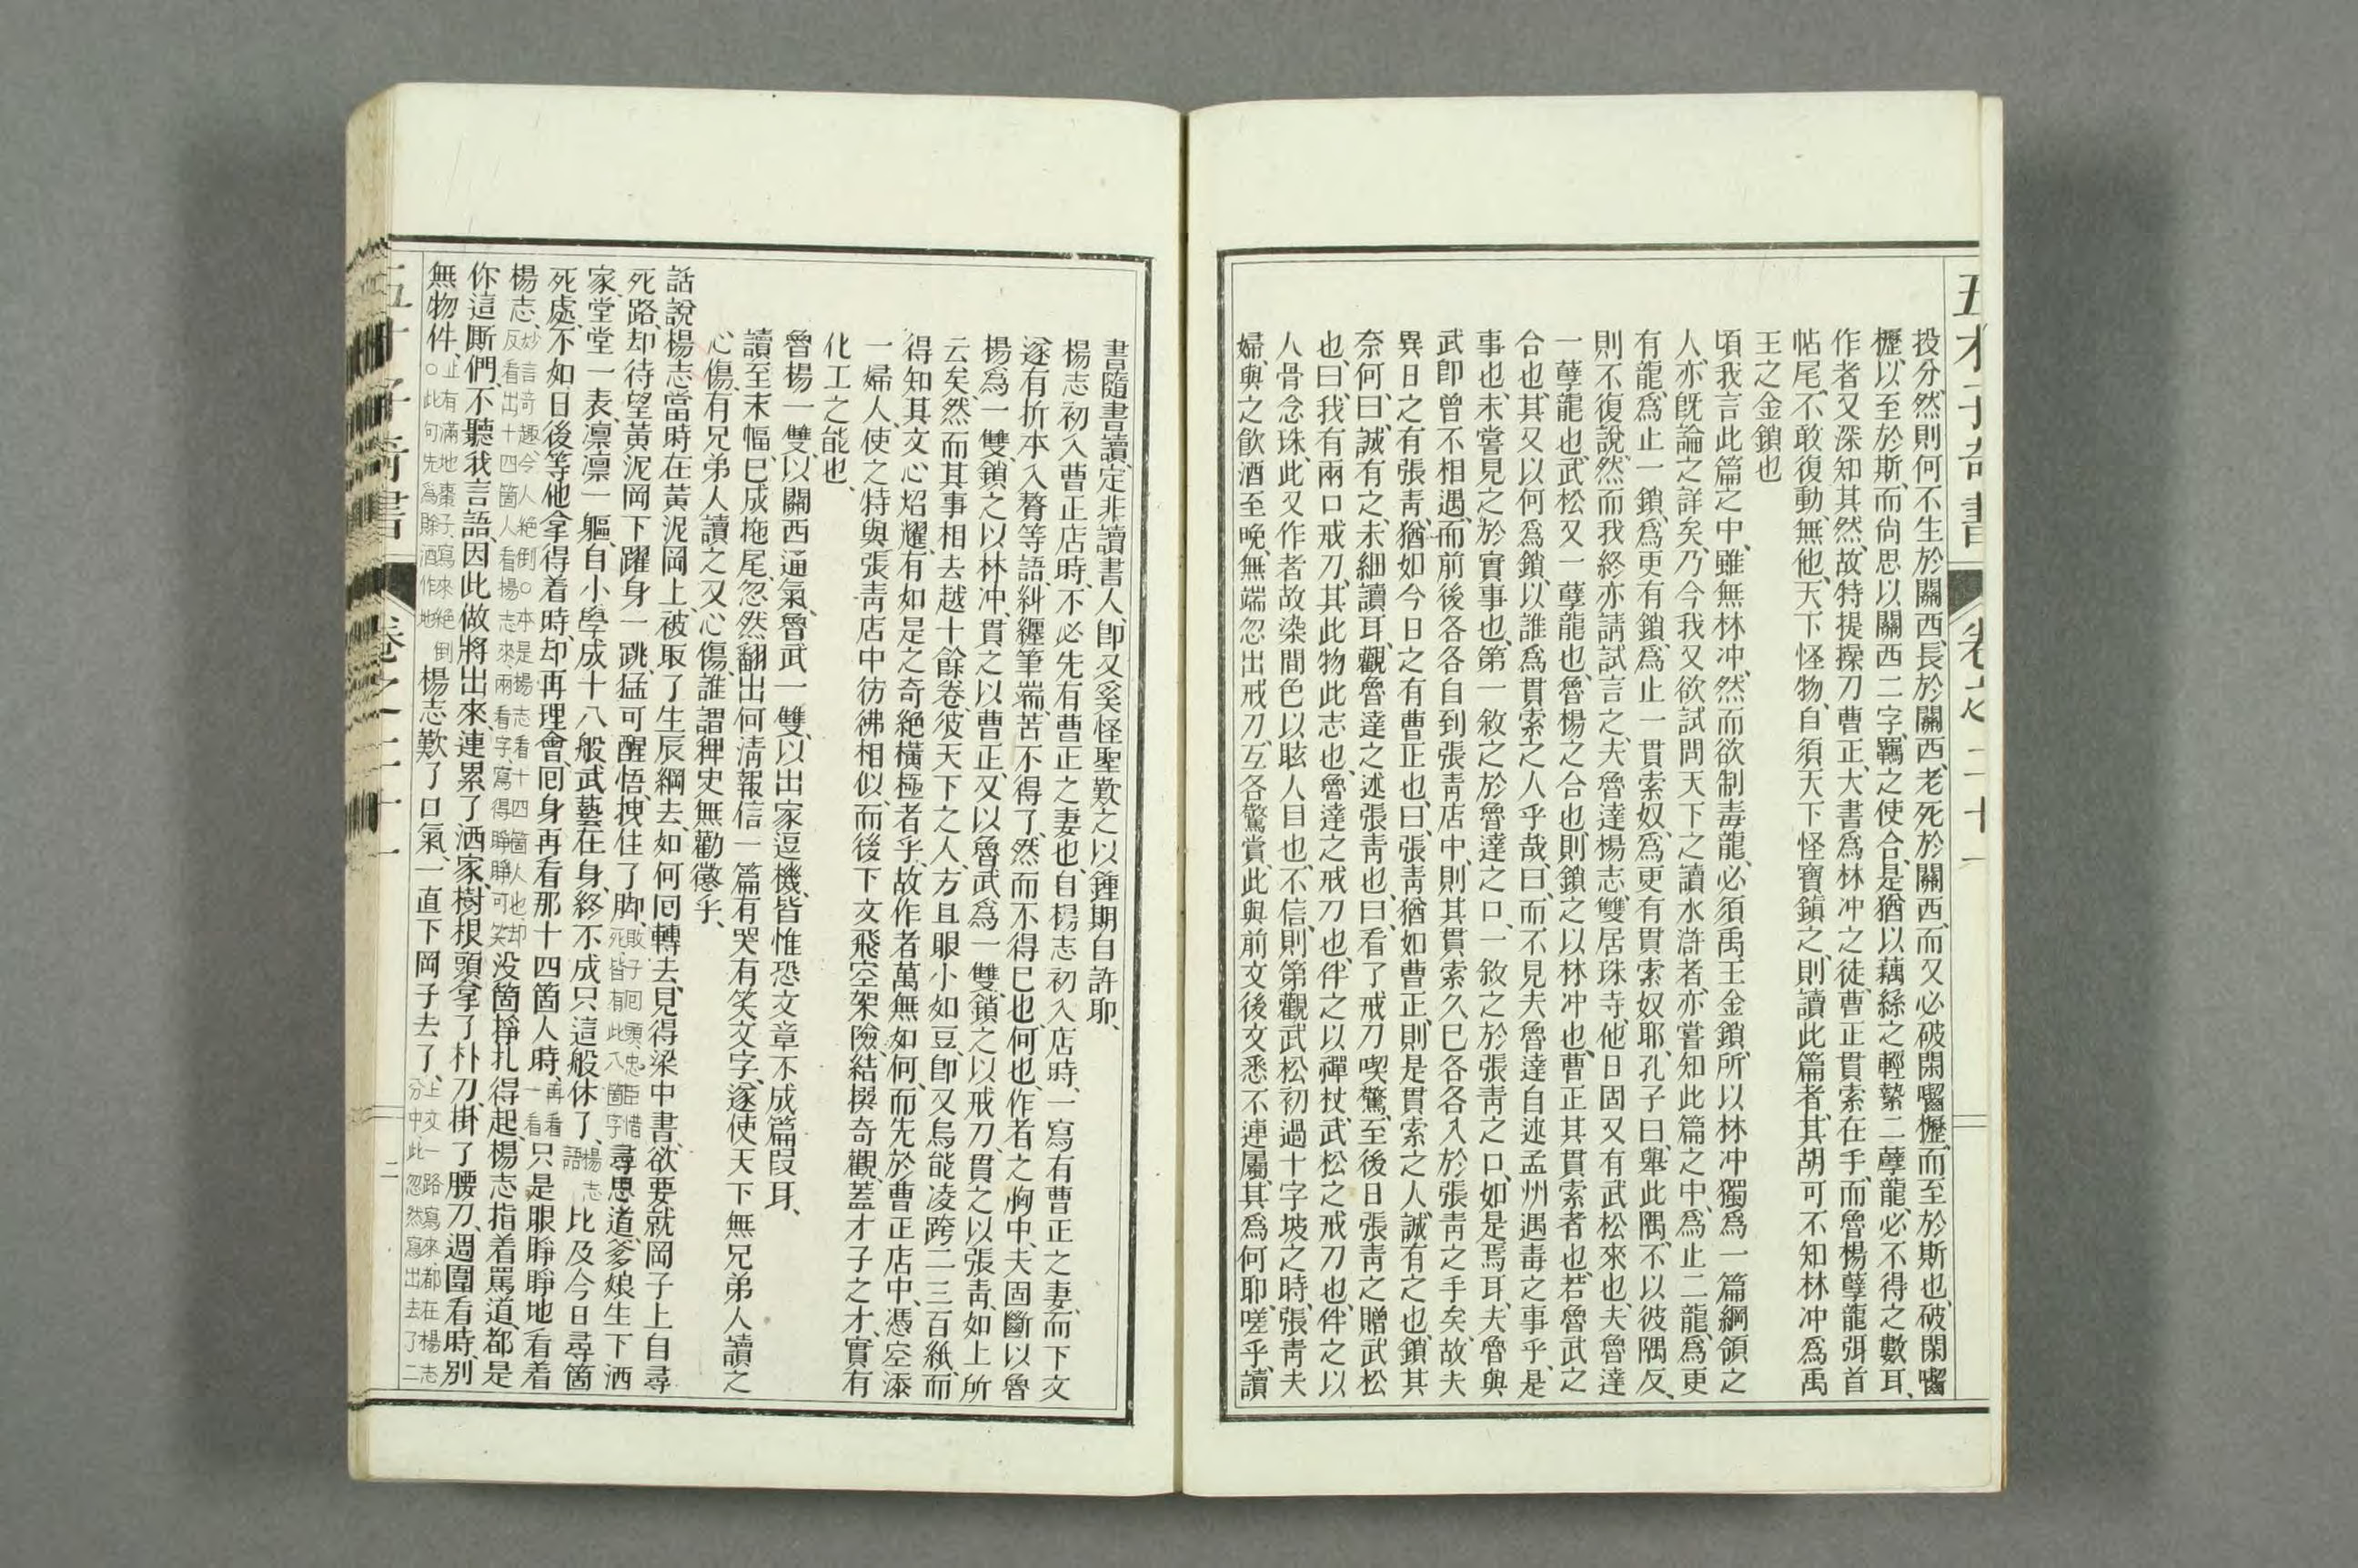 五才子奇書
卷之二十一
投分、然則何不生於關西、長於關西、老死於關西、而又必破閑囓櫪、而至於斯也、破閑囓
櫪以至於斯、而尙思以關西二字羈之使合、是猶以藕絲之輕縶二孽龍、必不得之數耳、
作者又深知其然、故特提操刀曹正、大書爲林冲之徒、曹正貫索在手、而魯楊孽龍弭首
帖尾、不敢復動、無他、天下怪物、自須天下怪寶鎮之、則讀此篇者、其胡可不知林冲爲禹
王之金鎖也
頃我言此篇之中、雖無林冲、然而欲制毒龍、必須禹王金鎖、所以林冲獨爲一篇綱領之
人、亦旣論之詳矣、乃今我又欲試問天下之讀水滸者、亦嘗知此篇之中、爲止二龍、爲更
有龍、爲止一鎖、爲更有鎖、爲止一貫索奴、爲更有貫索奴耶、孔子曰、舉此隅、不以彼隅反、
則不復說、然而我終亦請試言之、夫魯達楊志、雙居珠寺、他日固又有武松來也、夫魯達
一孽龍也、武松又一孽龍也、魯楊之合也、則鎖之以林冲也、曹正其貫索者也、若魯武之
合也、其又以何爲鎖、以誰爲貫索之人乎哉、曰、而不見夫魯達自述孟州遇毒之事乎、是
事也、未嘗見之於實事也、第一敘之於魯達之口、一敘之於張靑之口、如是焉耳、夫魯與
武卽曾不相遇、而前後各各自到張靑店中、則其貫索久已各各入於張靑之手矣、故夫
異日之有張靑、猶如今日之有曹正也、曰、張靑猶如曹正、則是貫索之人、誠有之也、鎖其
奈何、曰、誠有之、未細讀耳、觀魯達之述張靑也、曰、看了戒刀喫驚、至後日張靑之贈武松
也、曰、我有兩口戒刀、其此物此志也、魯達之戒刀也、伴之以禪杖、武松之戒刀也、伴之以
人骨念珠、此又作者故染間色、以眩人目也、不信、則第觀武松初過十字坡之時、張靑夫
婦、與之飮酒至晚、無端忽出戒刀、互各驚賞、此與前文後文悉不連屬、其爲何耶、嗟乎、讀
書隨書讀、定非讀書人、卽又奚怪聖歎之以鍾期自許耶、
楊志初入曹正店時、不必先有曹正之妻也、自楊志初入店時、一寫有曹正之妻、而下文
遂有折本入贅等語、糾纏筆端、苦不得了、然而不得已也、何也、作者之胸中、夫固斷以魯
楊爲一雙、鎖之以林冲、貫之以曹正、又以魯武爲一雙、鎖之以戒刀、貫之以張靑、如上所
云矣、然而其事相去越十餘卷、彼天下之人、方且眼小如豆、卽又烏能凌跨二三百紙、而
得知其文心炤耀、有如是之奇絶橫極者乎、故作者萬無如何、而先於曹正店中、憑空添
一婦人、使之特與張靑店中彷彿相似、而後下文飛空架險、結撰奇觀、蓋才子之才、實有
化工之能也、
魯楊一雙、以關西通氣、魯武一雙、以出家逗機、皆惟恐文章不成篇段耳、
讀至末幅、已成拖尾、忽然翻出何淸報信一篇、有哭有笑文字、遂使天下無兄弟人讀之
心傷、有兄弟人讀之又心傷、誰謂稗史無勸懲乎、
話說楊志當時在黃泥岡上、被取了生辰綱去、如何囘轉去、見得梁中書、欲要就岡子上自尋
死路、却待望黃泥岡下躍身一跳、猛可醒悟、拽住了脚、敗子囘頭、忠臣惜死、皆有此八箇字尋思道、爹娘生下洒
家、堂堂一表、凛凛一軀、自小學成十八般武藝在身、終不成只這般休了、楊志語比及今日尋箇
死處、不如日後等他拿得着時、却再理會、囘身再看那十四箇人時、再看一看只是眼睜睜地看着
楊志、妙言奇趣、令人絶倒○本是楊志看十四箇人也、却反看出十四箇人看楊志來、兩看字、寫得睜睜可笑没箇掙扎得起、楊志指着罵道、都是
你這厮們、不聽我言語、因此做將出來、連累了洒家、樹根頭拿了朴刀、掛了腰刀、週圍看時、別
無物件、止有滿地棗子、寫來絶倒○此句先爲賒酒作地楊志歎了口氣、一直下岡子去了、上文一路寫來、都在楊志分中、此忽然寫出去了二
五才子奇書
卷之二十一
二